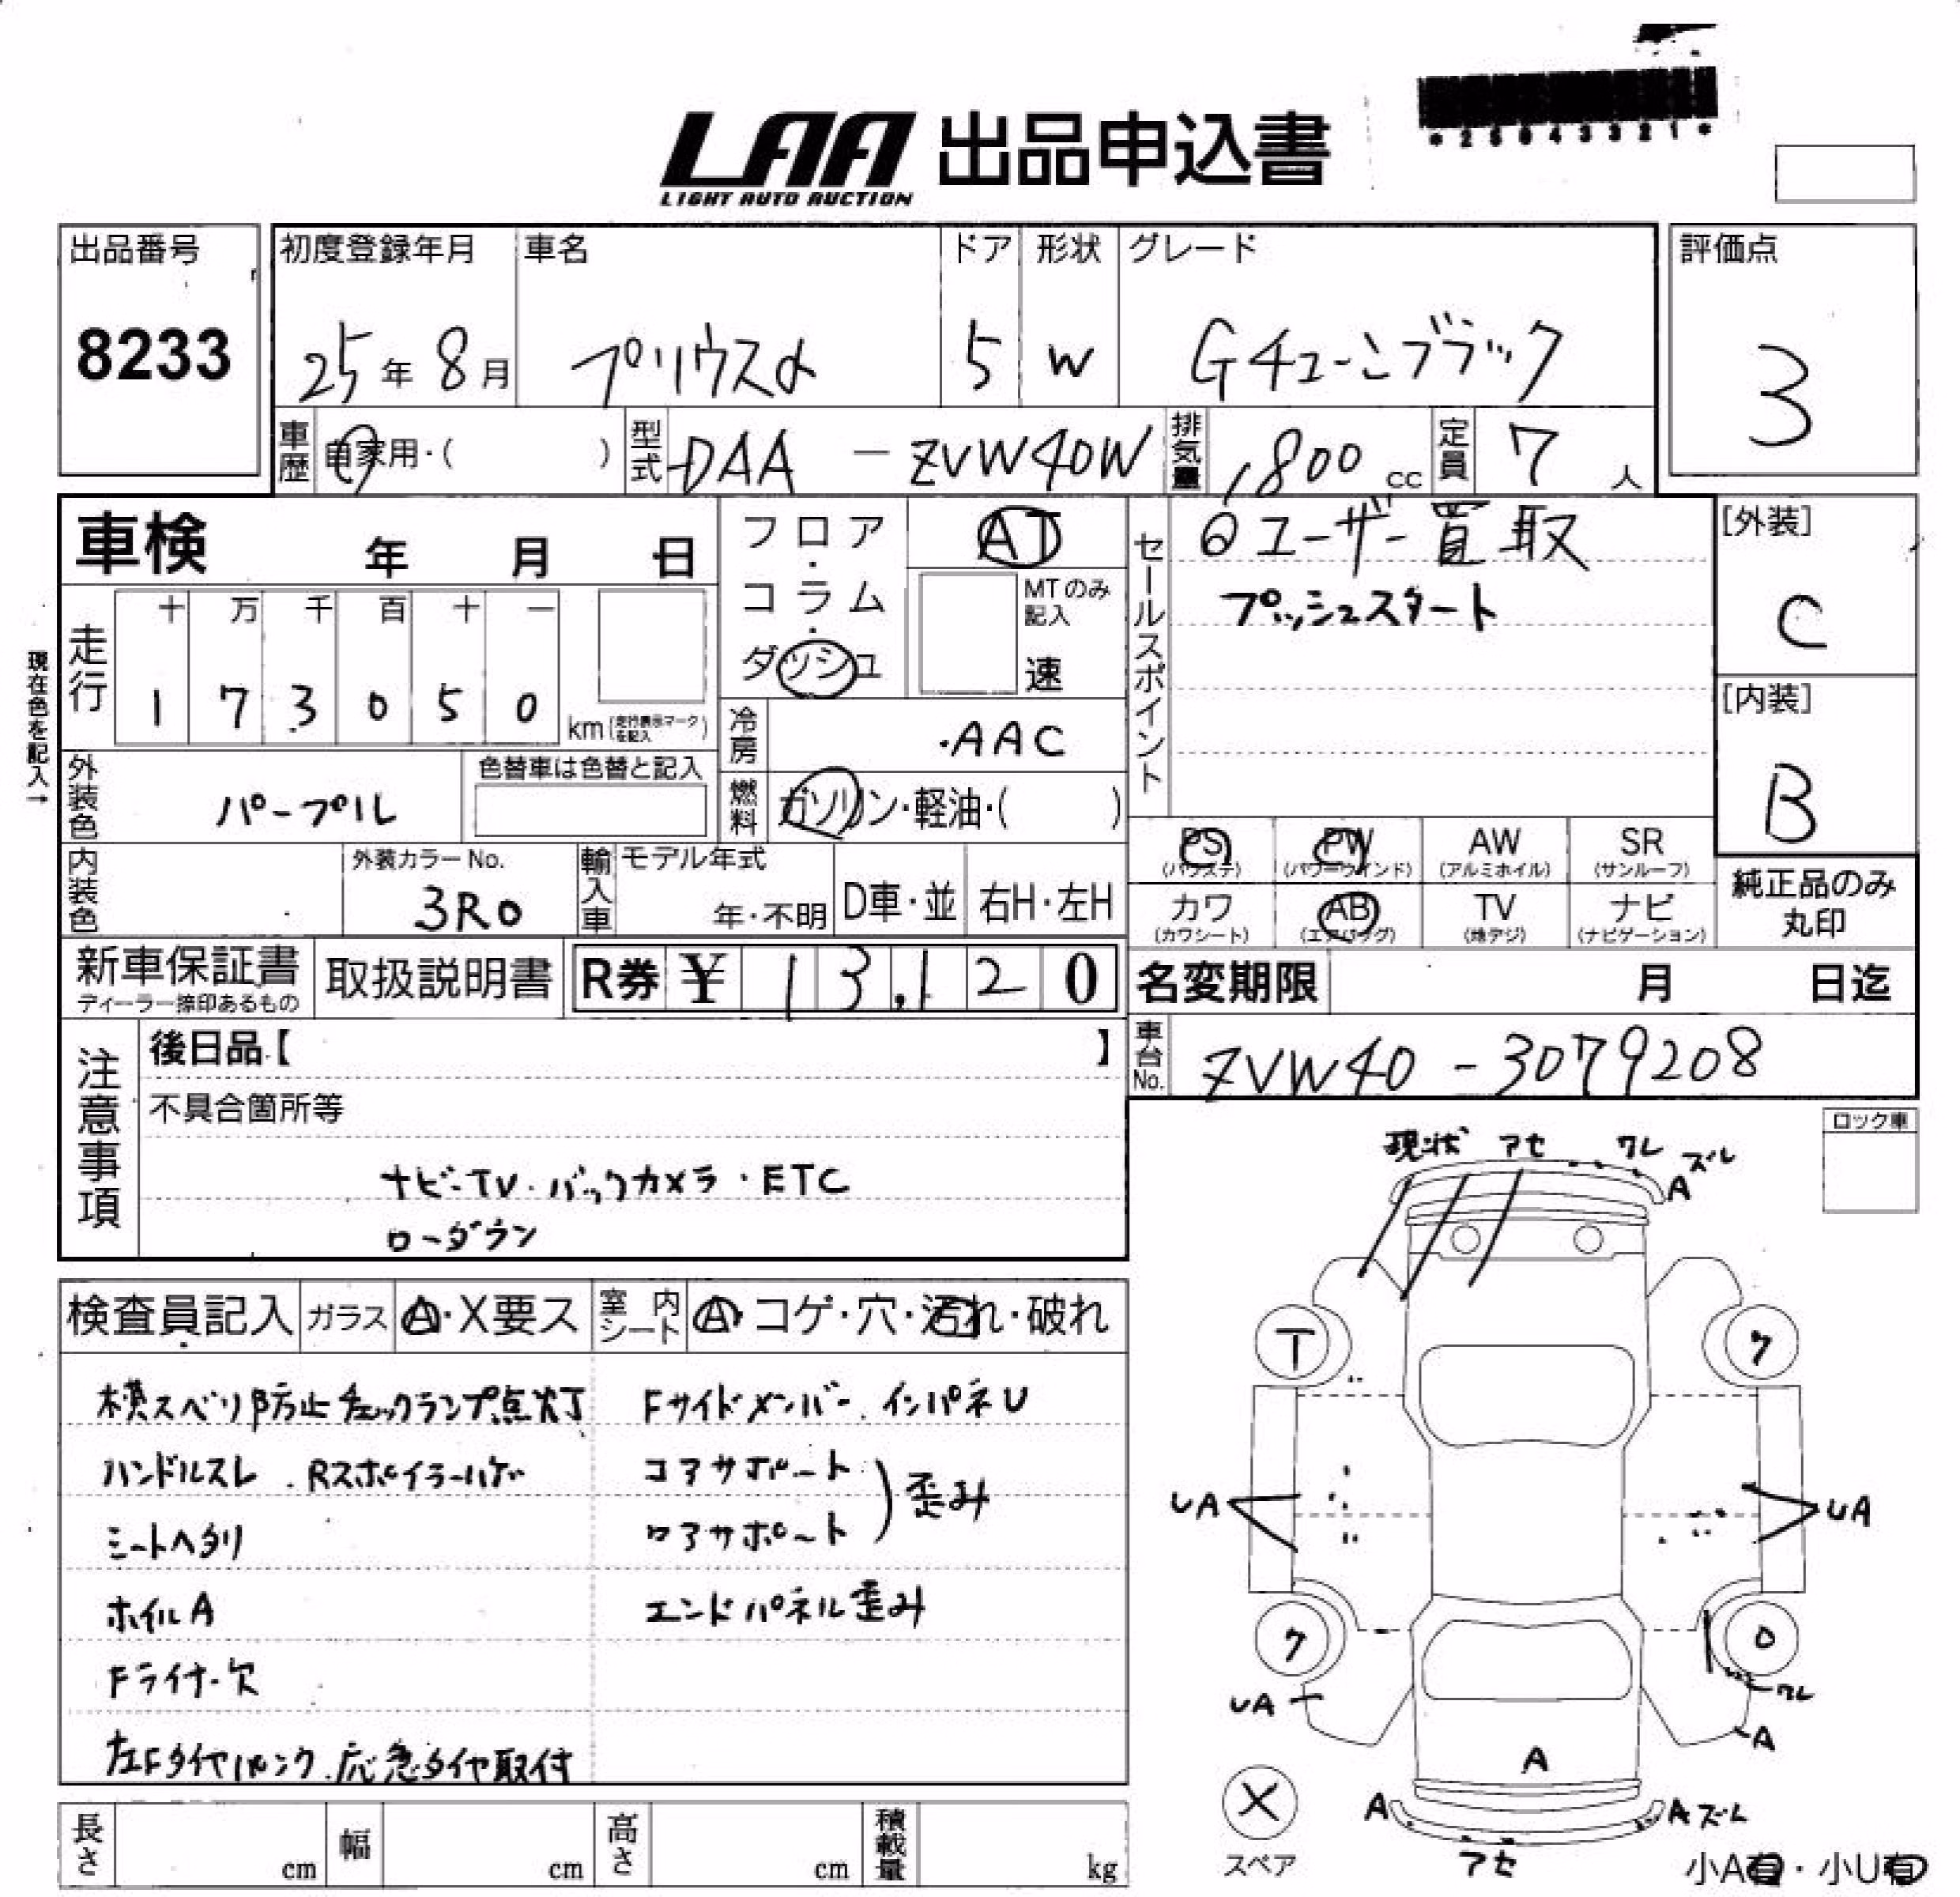 LAA 出品申込書
LIGHT AUTO AUCTION
*25043321*
出品番号
8233
初度登録年月
25年8月
車名
プリウスα
ドア
5
形状
W
グレード
Gチューンブラック
評価点
3
車歴
自家用・( )
型式
DAA - ZVW40W
排気量
1,800 cc
定員
7 人
車検 年 月 日
フロア・コラム・ダッシュ
AT
MTのみ記入
速
セールスポイント
◎ユーザー買取
プッシュスタート
[外装]
C
[内装]
B
現在色を記入→
走行
十 万 千 百 十 一
1 7 3 0 5 0
km(走行表示マークを記入)
冷房
AAC
外装色
パープル
色替車は色替と記入
燃料
ガソリン・軽油・( )
PS (パワステ)
PW (パワーウインド)
AW (アルミホイル)
SR (サンルーフ)
内装色
外装カラーNo.
3R0
輸入車
モデル年式
年・不明
D車・並
右H・左H
カワ (カワシート)
AB (エアバッグ)
TV (地デジ)
ナビ (ナビゲーション)
純正品のみ丸印
新車保証書
ディーラー捺印あるもの
取扱説明書
R券 ¥ 13,120
名変期限 月 日迄
車台No.
ZVW40-3079208
注意事項
後日品【 】
不具合箇所等
ナビ・TV・バックカメラ・ETC
ローダウン
ロック車
現状 アセ ワレ ズレ
A
検査員記入
ガラス
A・X要ス
室内シート
A・コゲ・穴・汚れ・破れ
横スベリ防止チェックランプ点灯
Fサイドメンバー・インパネU
ハンドルスレ・Rスポイラーハゲ
コアサポート
ロアサポート
歪み
シートヘタリ
ホイルA
エンドパネル歪み
Fライナー欠
左Fタイヤパンク・応急タイヤ取付
T
ク
UA
UA
ク
O
UA
ワレ
A
A
X
スペア
A
A ズレ
アセ
小A有・小U有
長さ cm
幅 cm
高さ cm
積載量 kg